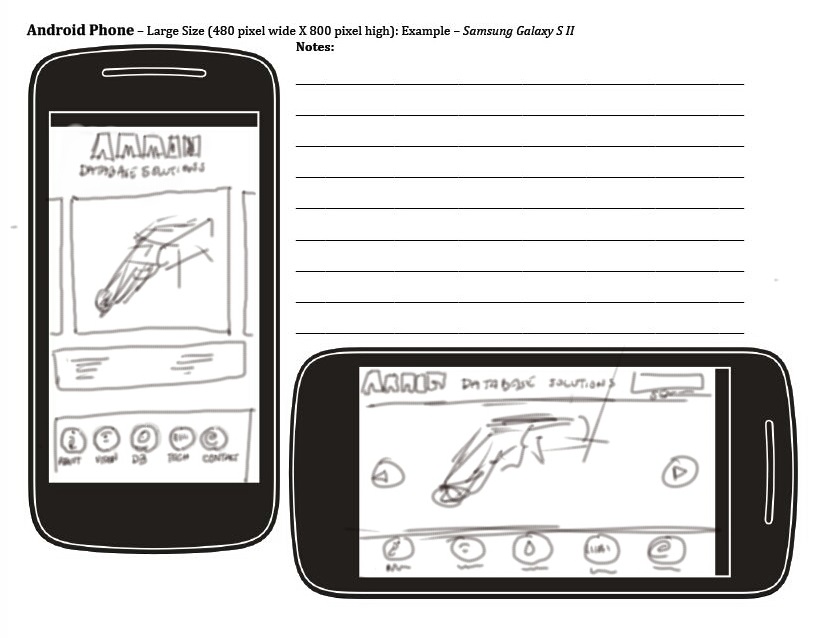 Android Phone – Large Size (480 pixel wide X 800 pixel high): Example – Samsung Galaxy S II
Notes:
DATABASE SOLUTIONS
ABOUT VISION DB TECH CONTACT
DATABASE SOLUTIONS